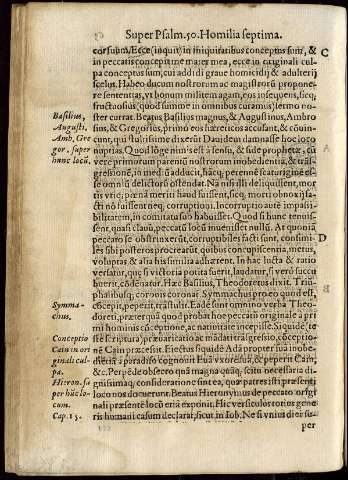 Super Psalm. 50. Homilia septima.
corsulum, Ecce (inquit) in iniquitatibus conceptus sum, & C
in peccatis concepit me mater mea, ecce in originali cul-
pa conceptus sum, cui addidi graue homicidij & adulterij
scelus. Habeo ductum nostrorum ac magistrorū propone-
re sententias, vt bonum militem agam, eos insequens, sicq;
fructuosius quod summe in omnibus curamus) sermo no-
ster currat. Beatus Basilius magnus, & Augustinus, Ambro
sius, & Gregorius, primò eos hæreticos accusant, & cōuin-
cunt, qui stultissime dixerūt Dauidem damnasse hoc loco
nuptias. Quod lōge nimis est à sensu, & fide prophetæ, cū
vere primorum parentū nostrorum inobedientiā, & trās-
gressionē, in mediū adducit, hācq; perennē scaturiginē es-
se omniū delictorū ostendat. Na nisi illi deliquissent, mor
tis vtiq; pœnā meriti haud fuissent, sicq; morti obnoxij fa-
cti nō fuissent neq; corruptioni. Incorruptio autē impassi-
bilitatem, in comitatu suo habuisset. Quod si hunc tenuis-
sent, quasi clauū, peccatū locū inuenisset nullū. At quonia
peccato se obstrinxerūt, corruptibiles facti sunt, consimi- D
les sibi posteros procrearūt, quibus concupiscentia, metus,
voluptas & alia his similia adhærent. In hac lucta & ratio
versatur, quę si victoria potita fuerit, laudatur, si verò succu
buerit, cōdēnatur. Hæc Basilius, Theodoretus dixit. Triu-
phalibusq; corporis coronas. Symmachus pro eo quod est,
concepit, peperit, trāstulit. Eadē sunt omnino verba Theo-
doreti, præterquā quod probat hoc peccatū originale à pri
mi hominis cōceptione, ac natiuitate incepisse. Siquidē te
ste scriptura, præuaricatio ac mādati trāsgressio, cōceptio-
nē Cain præcessit. Eiectus siquidē Adā propter sua inobe-
dientiā à paradiso cognouit Euā vxorē suā, & peperit Cain,
& c. Perpēde obsecro quā magna quæq; scitu necessaria di-
gnissimaq; consideratione sint ea, quæ patres isti præsenti
loco nos docuerunt. Beatus Hieronymus de peccato origi
nali præsentē locū etiā exponit. Hic versiculus totius gene
ris humani casum declarat, sicut in Iob. Ne si vnius diei su-
per
Basilius,
Augusti,
Amb, Gre
gor. super
hunc locū.
Symma-
chus.
Conceptio
Cain in ori
ginali cul-
pa.
Hieron. su
per hūc lo-
cum.
Cap. 15.